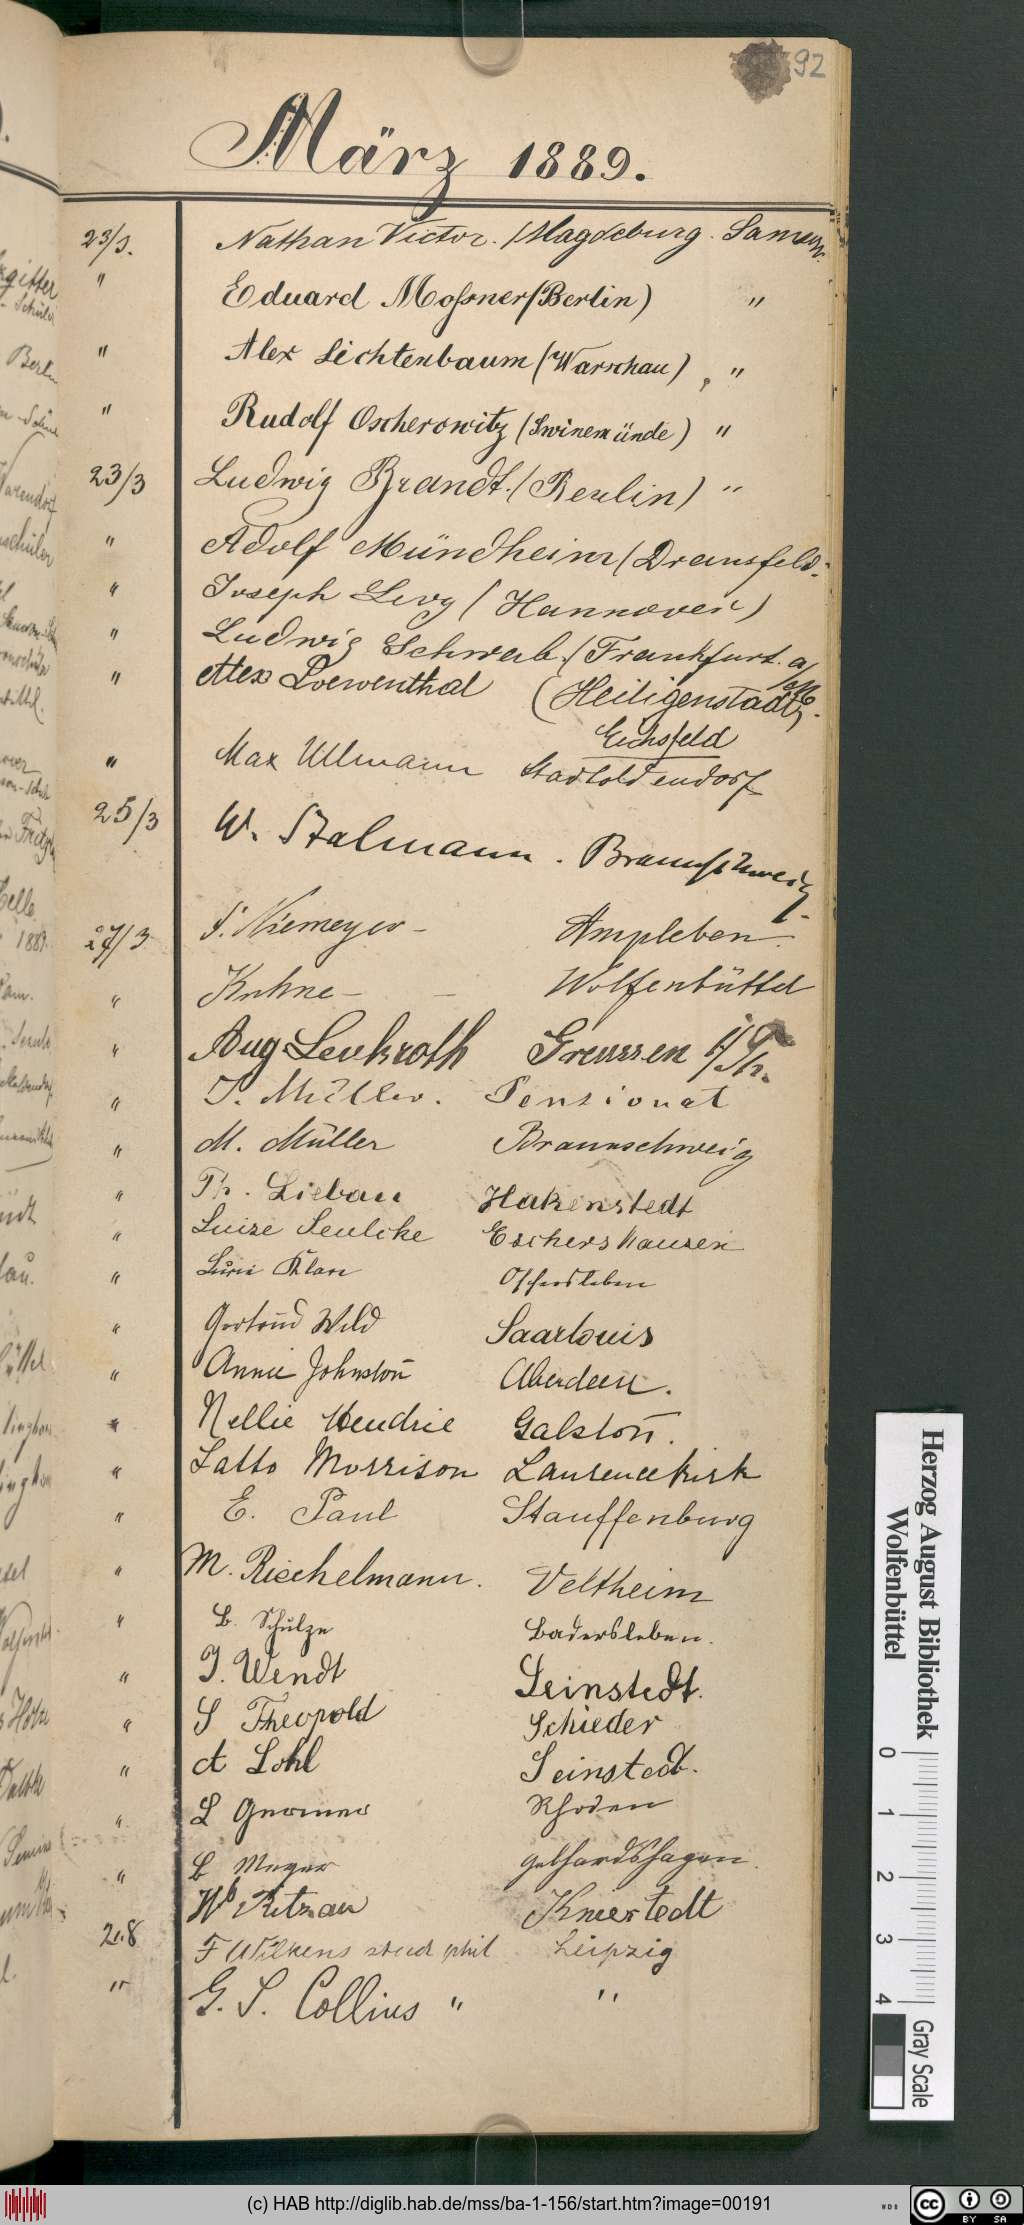 92
März 1889.
23/3. Nathan Victor. (Magdeburg. Samson.
" Eduard Mossner (Berlin) "
" Alex Lichtenbaum (Warschau), "
" Rudolf Oscherowitz (Swinemünde) "
23/3 Ludwig Brandt. (Berlin) "
" Adolf Mündheim (Dransfeld.
" Joseph Levy (Hannover)
" Ludwig Schwab. (Frankfurt. a/M.
" Alex Loewenthal (Heiligenstadt,
Eichsfeld
" Max Ullmann Stadtoldendorf
25/3 W. Stalmann. Braunschweig.
27/3 Niemeyer - Ampleben.
" Kuhne - - Wolfenbüttel
" Aug Levkroth Greussen i/Th.
" Müller. Pensionat
" M. Müller Braunschweig
" Th. Liebau Hakenstedt
" Luise Seulcke Eschershausen
" Oschersleben
" Gertrud Wild Saarlouis
" Annie Johnston Aberdeen.
" Nellie Hendrie Galston.
" Latto Morrison Laurencekirk
" E. Paul Stauffenburg
" M. Riechelmann. Veltheim
" B. Schulze Badersleben.
" J. Wendt Seinstedt.
" S Theopold Schieder
" A Lohl Seinstedt.
" L Rhoden
" Meyer Gebhardshagen.
W. Ritzau Kniestedt
28 F Wilkens stud phil Leipzig
" G. S. Collins " "
Herzog August Bibliothek
Wolfenbüttel
0 1 2 3 4
Gray Scale
(c) HAB http://diglib.hab.de/mss/ba-1-156/start.htm?image=00191
WDB
CC BY SA